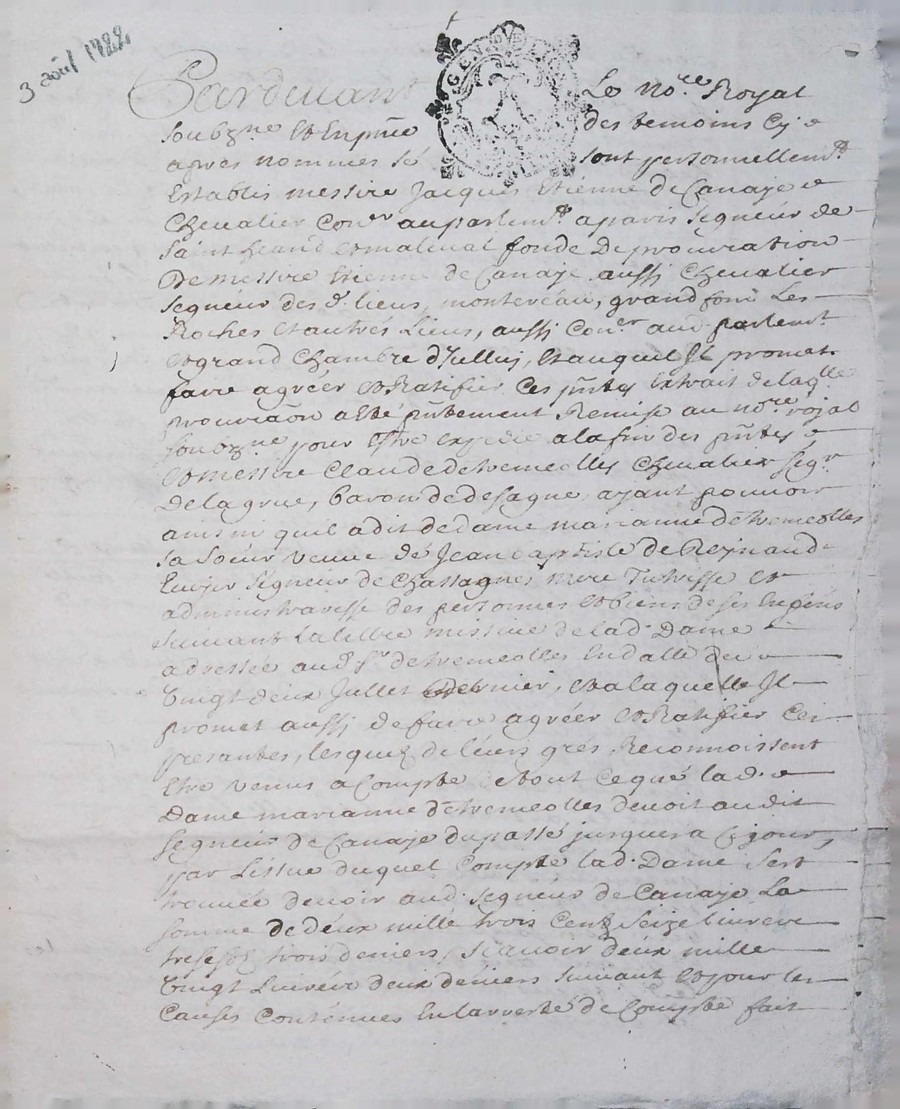 3 août 1722
Pardevant Le no.re Royal
soubzne et En pñce des temoins Cy
apres nommes se sont personnellemt
Establis messire Jacques Etienne de Canaye
Chevalier Con.er au parlemt a paris segneur de
Saint heand et malleval fondé De procuration
De messire Etienne de Canaye aussi Chevalier
segneur des d. lieux, montereau, grand fond Les
Roches et autres Lieux, aussi Con.er aud. parlemt
et grand Chambre d'Icelluy, et auquel Il promet
faire agréer et Ratifier Ces pñtes Extrait de laq.lle
procuraõn a eté pñtement Remise au no.re royal
souzne pour Estre expedié a la fin des pñtes
et messire Claude de tremeolles Chevalier seg.r
De la grue, baron de desagne, ayant pouvoir
ainsi qu'il a dit de dame marianne de tremeolles
sa soeur veuve de Jean baptiste de Reynaud
Ecuyer segneur de Chassagnes mere Tutresse et
administraresse des personnes et biens de ses Enfens
suivant La lettre missive de lad. Dame
adressée aud. S.r de tremeolles En datte du
Vingt deux Jullet dernier, et a laquelle Il
promet aussi de faire agréer et Ratifier Ces
presantes, lesquez de leurs grés Reconnoissent
Etre venus a Compte de tout Ce que lad.
Dame marianne de tremeolles devoit audit
segneur de Canaye du passé jusques a Cejour,
par L'issue duquel Compte lad. Dame s'est
trouvée devoir aud. segneur de Canaye La
somme de deux mille trois Centz seize livres
treses trois deniers, scavoir deux mille
Vingt Livres deux deniers suivant et pour les
Causes Contenues En l'arresté de Compte fait